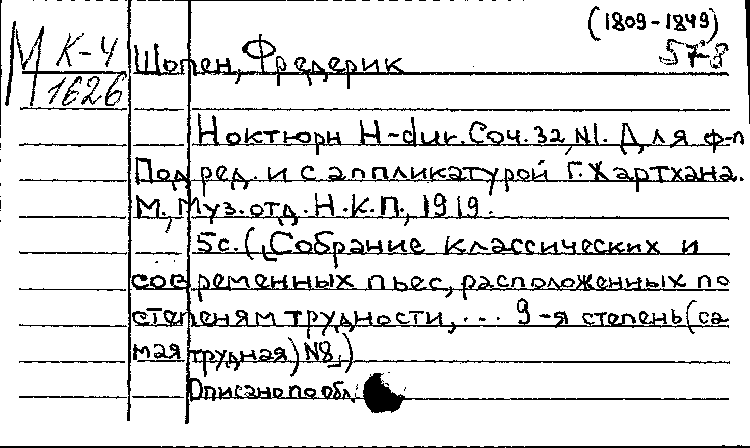 (1809-1849)
М К-4 Шопен, Фредерик 57-8
1626
Ноктюрн H-dur. Соч. 32, №1. Для ф-п
Под ред. и с аппликатурой Г. Хартхана.
М., Муз. отд. Н.К.П., 1919.
5с. (Собрание классических и
современных пьес, расположенных по
степеням трудности, ... 9-я степень (са
мая трудная) №8,)
Описано по обл.